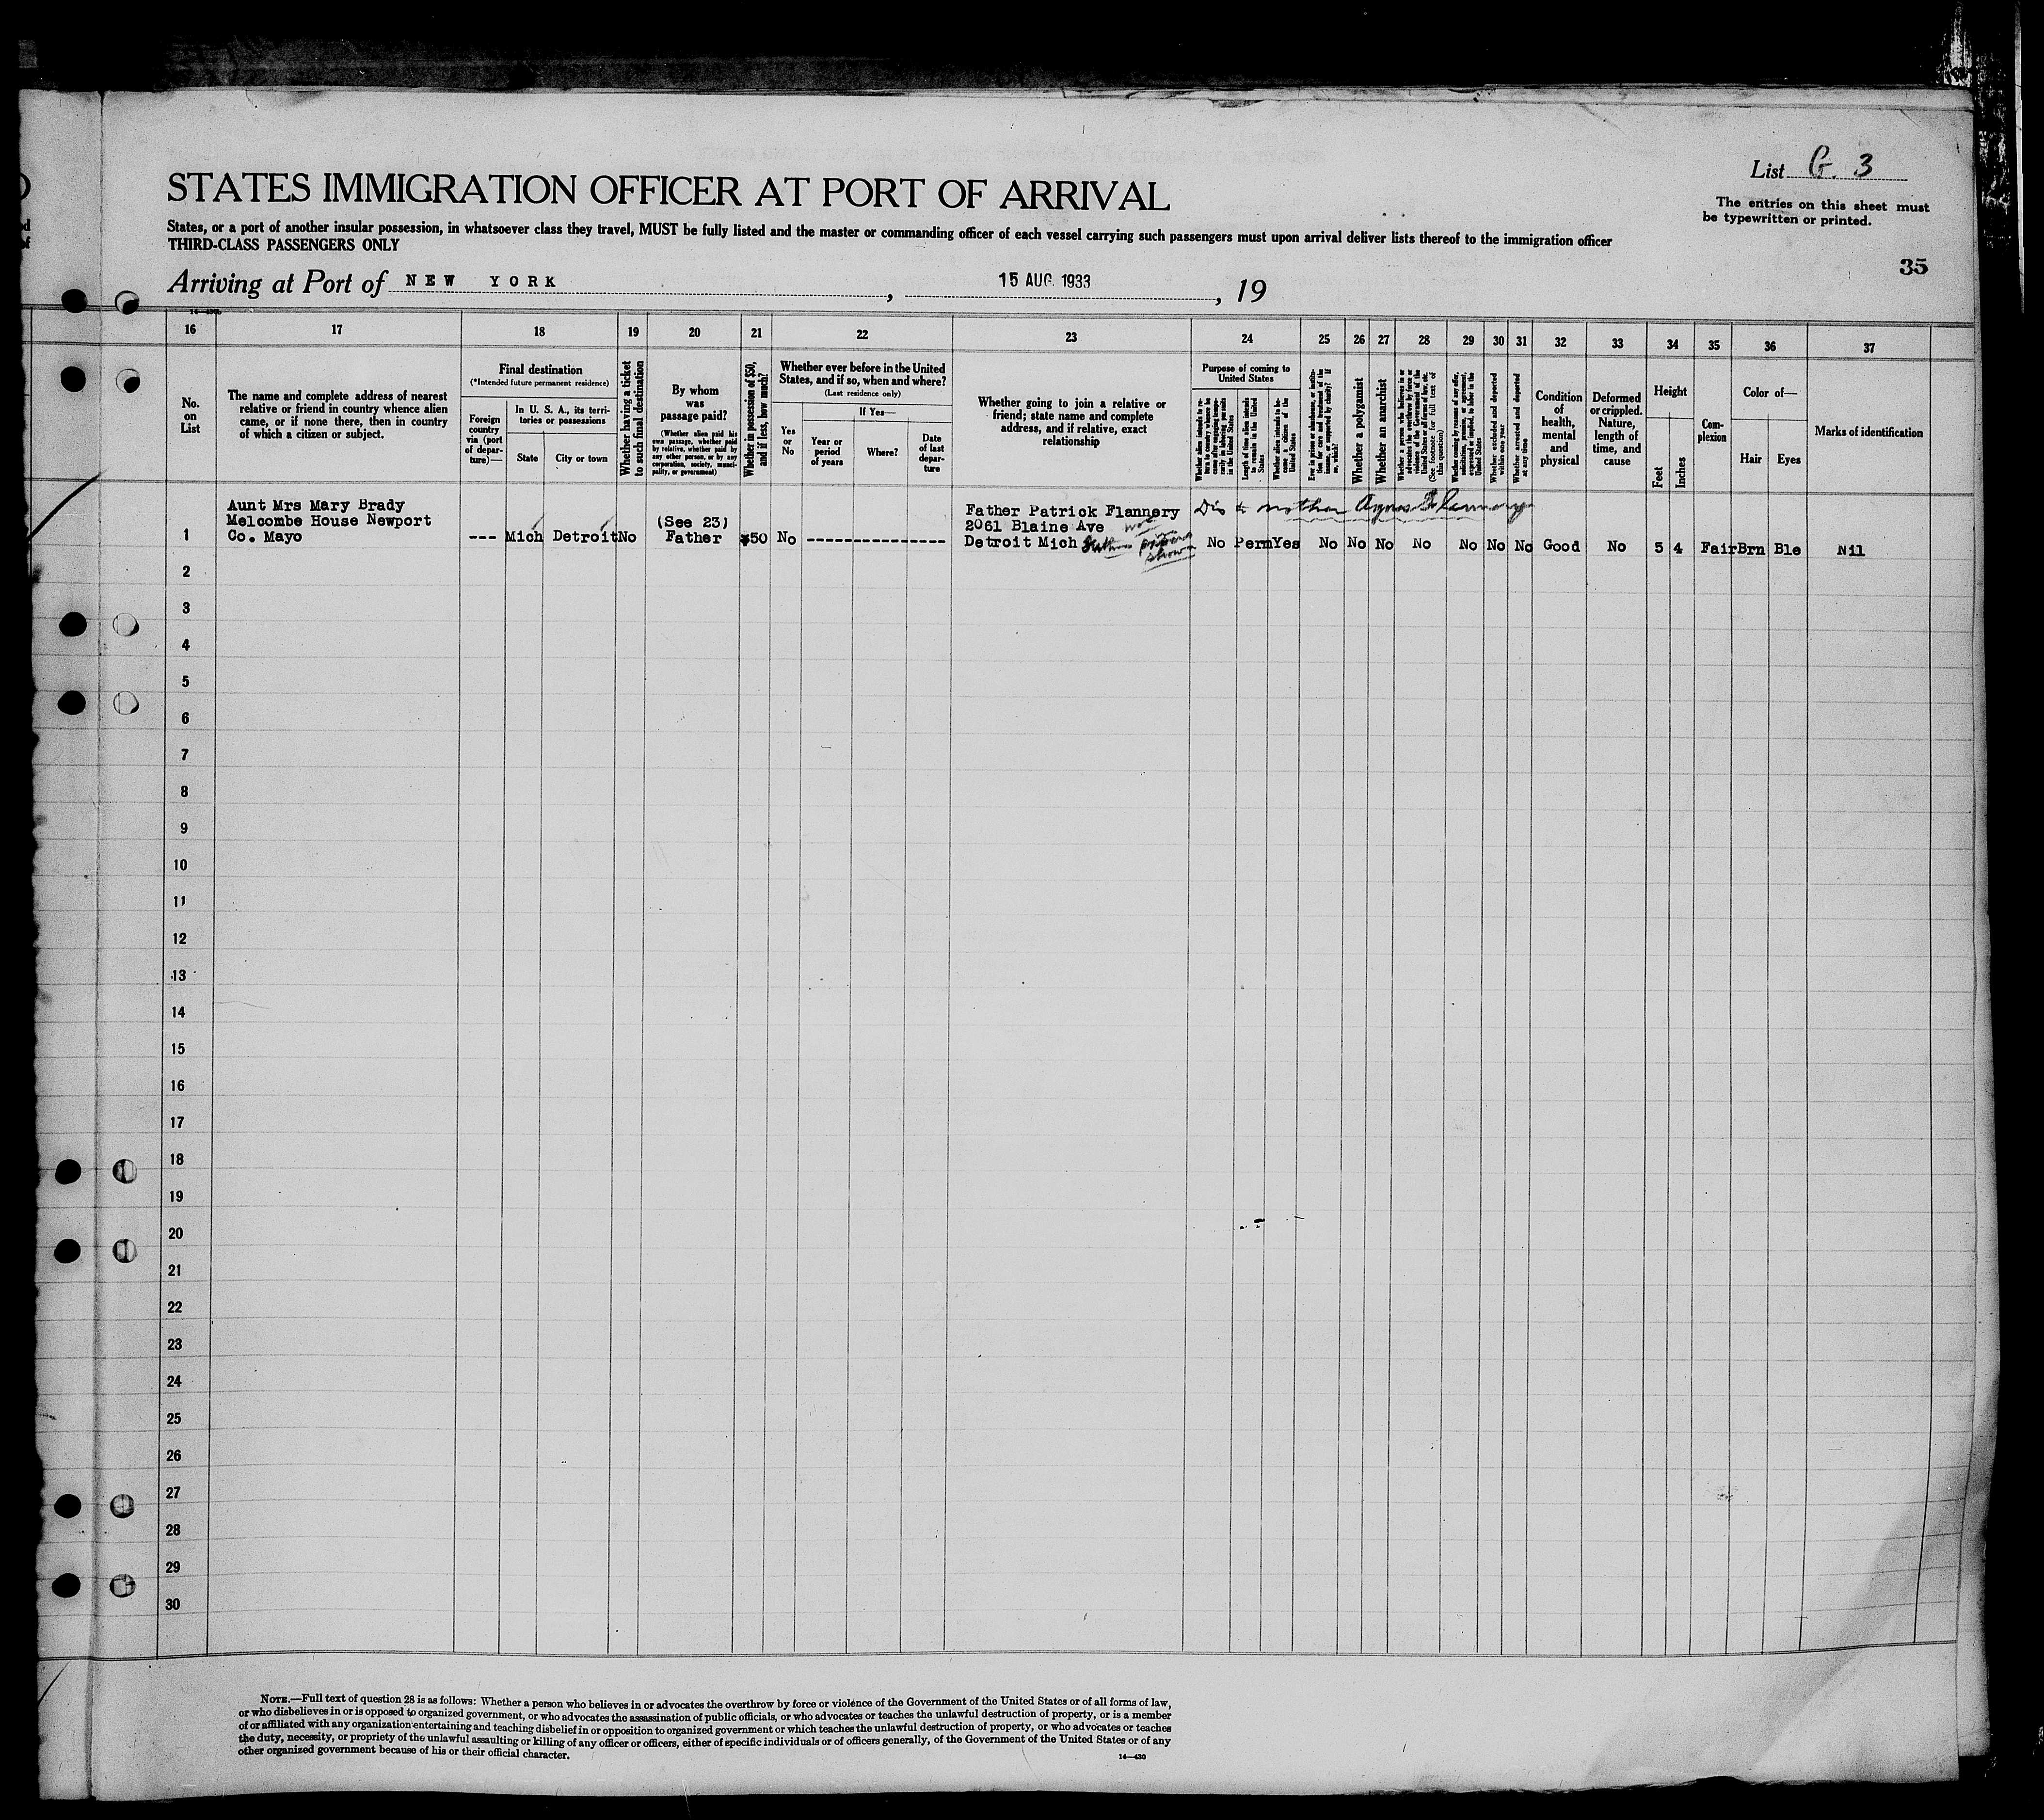 List G. 3
STATES IMMIGRATION OFFICER AT PORT OF ARRIVAL
The entries on this sheet must
be typewritten or printed.
States, or a port of another insular possession, in whatsoever class they travel, MUST be fully listed and the master or commanding officer of each vessel carrying such passengers must upon arrival deliver lists thereof to the immigration officer
THIRD-CLASS PASSENGERS ONLY
35
Arriving at Port of NEW YORK, 15 AUG. 1933, 19
16 17 18 19 20 21 22 23 24 25 26 27 28 29 30 31 32 33 34 35 36 37
No.
on
List
The name and complete address of nearest
relative or friend in country whence alien
came, or if none there, then in country
of which a citizen or subject.
Final destination
(*Intended future permanent residence)
Foreign
country
via (port
of depar-
ture)—
In U. S. A., its terri-
tories or possessions
State
City or town
Whether having a ticket
to such final destination
By whom
was
passage paid?
(Whether alien paid his
own passage, whether paid
by relative, whether paid by
any other person, or by any
corporation, society, munici-
pality, or government)
Whether in possession of $50,
and if less, how much?
Whether ever before in the United
States, and if so, when and where?
(Last residence only)
Yes
or
No
If Yes—
Year or
period
of years
Where?
Date
of last
depar-
ture
Whether going to join a relative or
friend; state name and complete
address, and if relative, exact
relationship
Purpose of coming to
United States
Whether alien intends to re-
turn to country whence he
came after engaging tempo-
rarily in laboring pursuits
in the United States
Length of time alien intends
to remain in the United
States
Whether alien intends to be-
come a citizen of the
United States
Ever in prison or almshouse, or institu-
tion for care and treatment of the
insane, or supported by charity? If
so, which?
Whether a polygamist
Whether an anarchist
Whether a person who believes in or
advocates the overthrow by force or
violence of the Government of the
United States or all forms of law, etc.
(See footnote for full text of
this question)
Whether coming by reason of any offer,
solicitation, promise, or agreement,
expressed or implied, to labor in the
United States
Whether excluded and deported
within one year
Whether arrested and deported
at any time
Condition
of
health,
mental
and
physical
Deformed
or crippled.
Nature,
length of
time, and
cause
Height
Feet
Inches
Com-
plexion
Color of—
Hair
Eyes
Marks of identification
Aunt Mrs Mary Brady
Melcombe House Newport
Co. Mayo
1
--- Mich Detroit No
(See 23)
Father
$50 No ---------------
Father Patrick Flannery
2061 Blaine Ave
Detroit Mich
papers
shown
Dis to mother Agnes Flannery
No Perm Yes No No No No No No No Good No 5 4 Fair Brn Ble Nil
2
3
4
5
6
7
8
9
10
11
12
13
14
15
16
17
18
19
20
21
22
23
24
25
26
27
28
29
30
NOTE.—Full text of question 28 is as follows: Whether a person who believes in or advocates the overthrow by force or violence of the Government of the United States or of all forms of law,
or who disbelieves in or is opposed to organized government, or who advocates the assassination of public officials, or who advocates or teaches the unlawful destruction of property, or is a member
of or affiliated with any organization entertaining and teaching disbelief in or opposition to organized government or which teaches the unlawful destruction of property, or who advocates or teaches
the duty, necessity, or propriety of the unlawful assaulting or killing of any officer or officers, either of specific individuals or of officers generally, of the Government of the United States or of any
other organized government because of his or their official character.
14—430